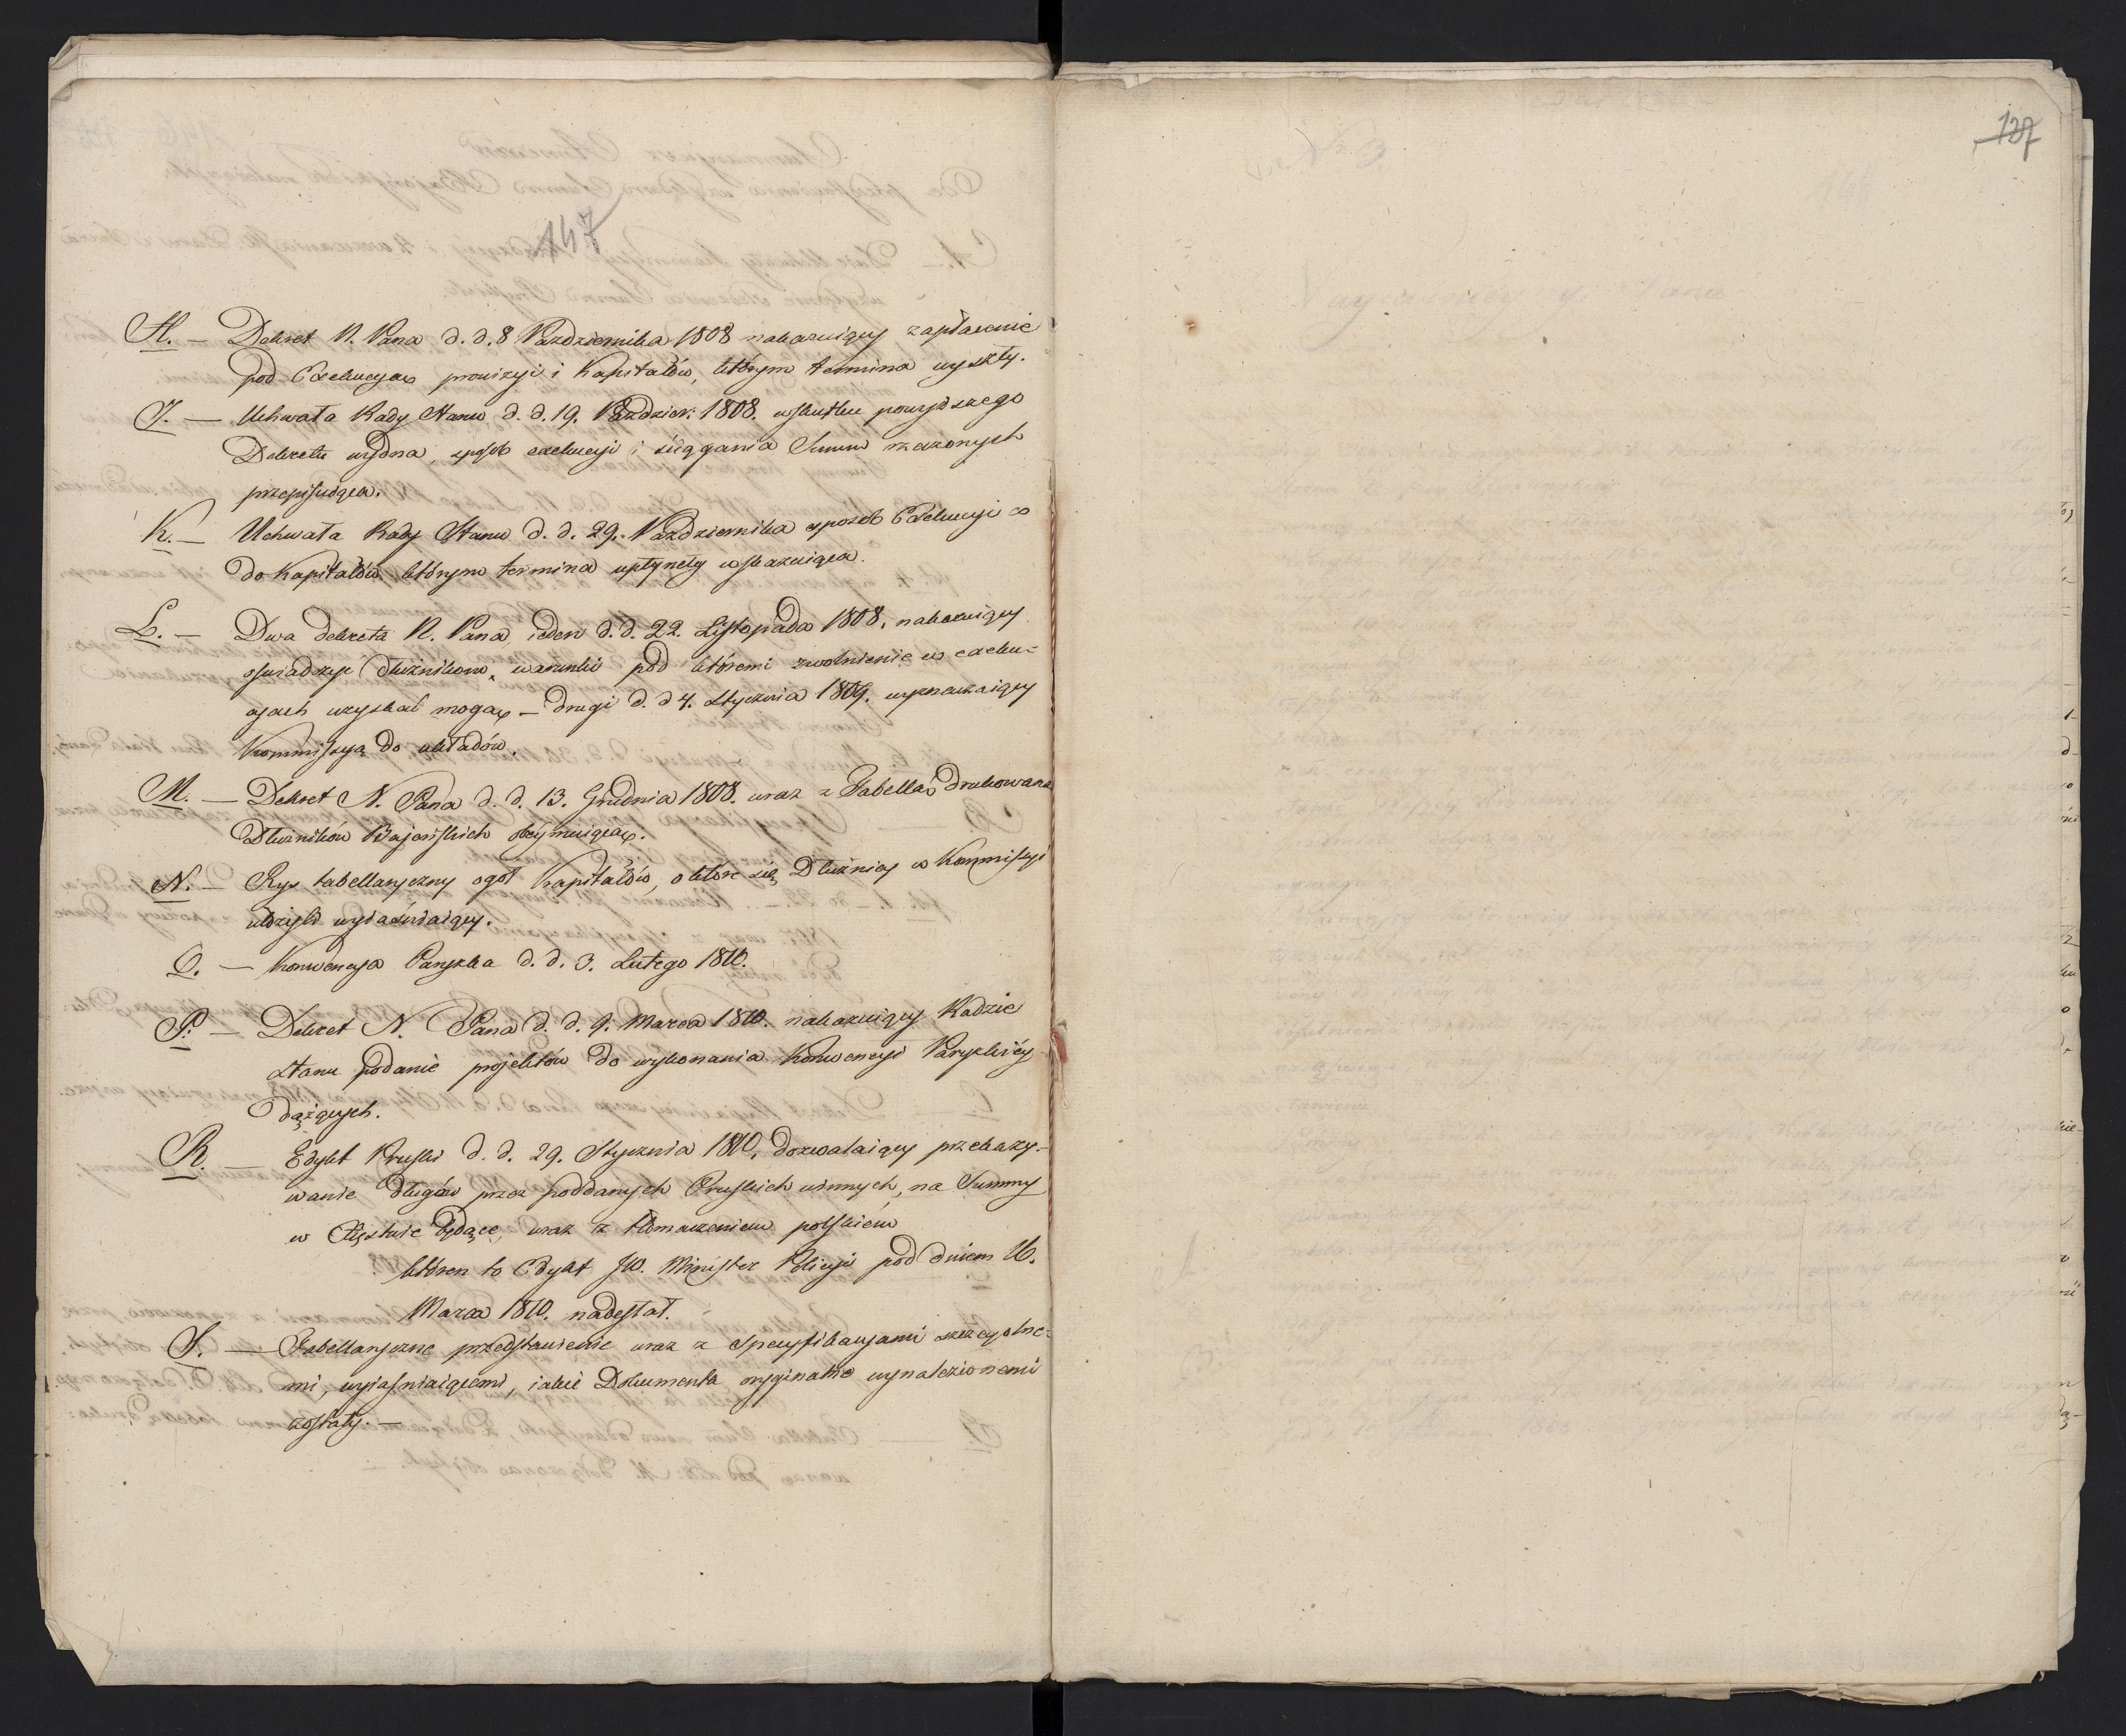 147
H. — Dekret N. Pana d. d. 8 Października 1808 nakazuiący zapłacenie
pod Exekucyą prowizyi i Kapitałów, którym termina wyszły.
J. — Uchwała Rady Stanu d. d. 19. Paździer: 1808. wskutku powyższego
Dekretu wydna, sposób exekucyi i ściągania Summ rzeczonych
przepisuiąca.
K. — Uchwała Rady Stanu d. d. 29. Października sposób Exekucyi co
do Kapitałów którym termina upłynęły wskazuiąca.
L. — Dwa dekreta N. Pana, ieden d. d. 22. Listopada 1808, nakazuiący
oświadczyć Dłużnikom, warunki pod któremi zwolnienie w exeku-
cyach uzyskać mogą — drugi d. d 4. Stycznia 1809. wyznaczaiący
Kommissyą do układów.
M. — Dekret N. Pana d. d. 13. Grudnia 1808. wraz z Tabellą drukowaną
Dłużników Bajońskich obeymuiącą.
N. — Rys tabellaryczny ogół Kapitałów, o które się Dłużnicy w Kommissyi
ułożyli wyiaśniaiący.
O. — Konwencya Paryzka d. d. 3. Lutego 1810.
P. — Dekret N. Pana d. d. 9. Marca 1810. nakazuiący Radzie
Stanu podanie projektów do wykonania Konwencyi Paryzkiéy
dążących.
R. — Edykt Pruski d. d. 29. Stycznia 1810, dozwalaiący przekazy-
wanie długów przez poddanych Pruskich winnych, na Summy
w Xięstwie będące, wraz z tłomaczeniem polskiem
któren to Edykt JW. Minister Policyi pod dniem 16.
Marca 1810. nadesłał.
S. — Tabellaryczne przedstawienie wraz z specyfikacyami szczególne-
mi, wyiaśniaiącemi, iakie Dokumenta oryginalne wynalezionemi
zostały. —
127